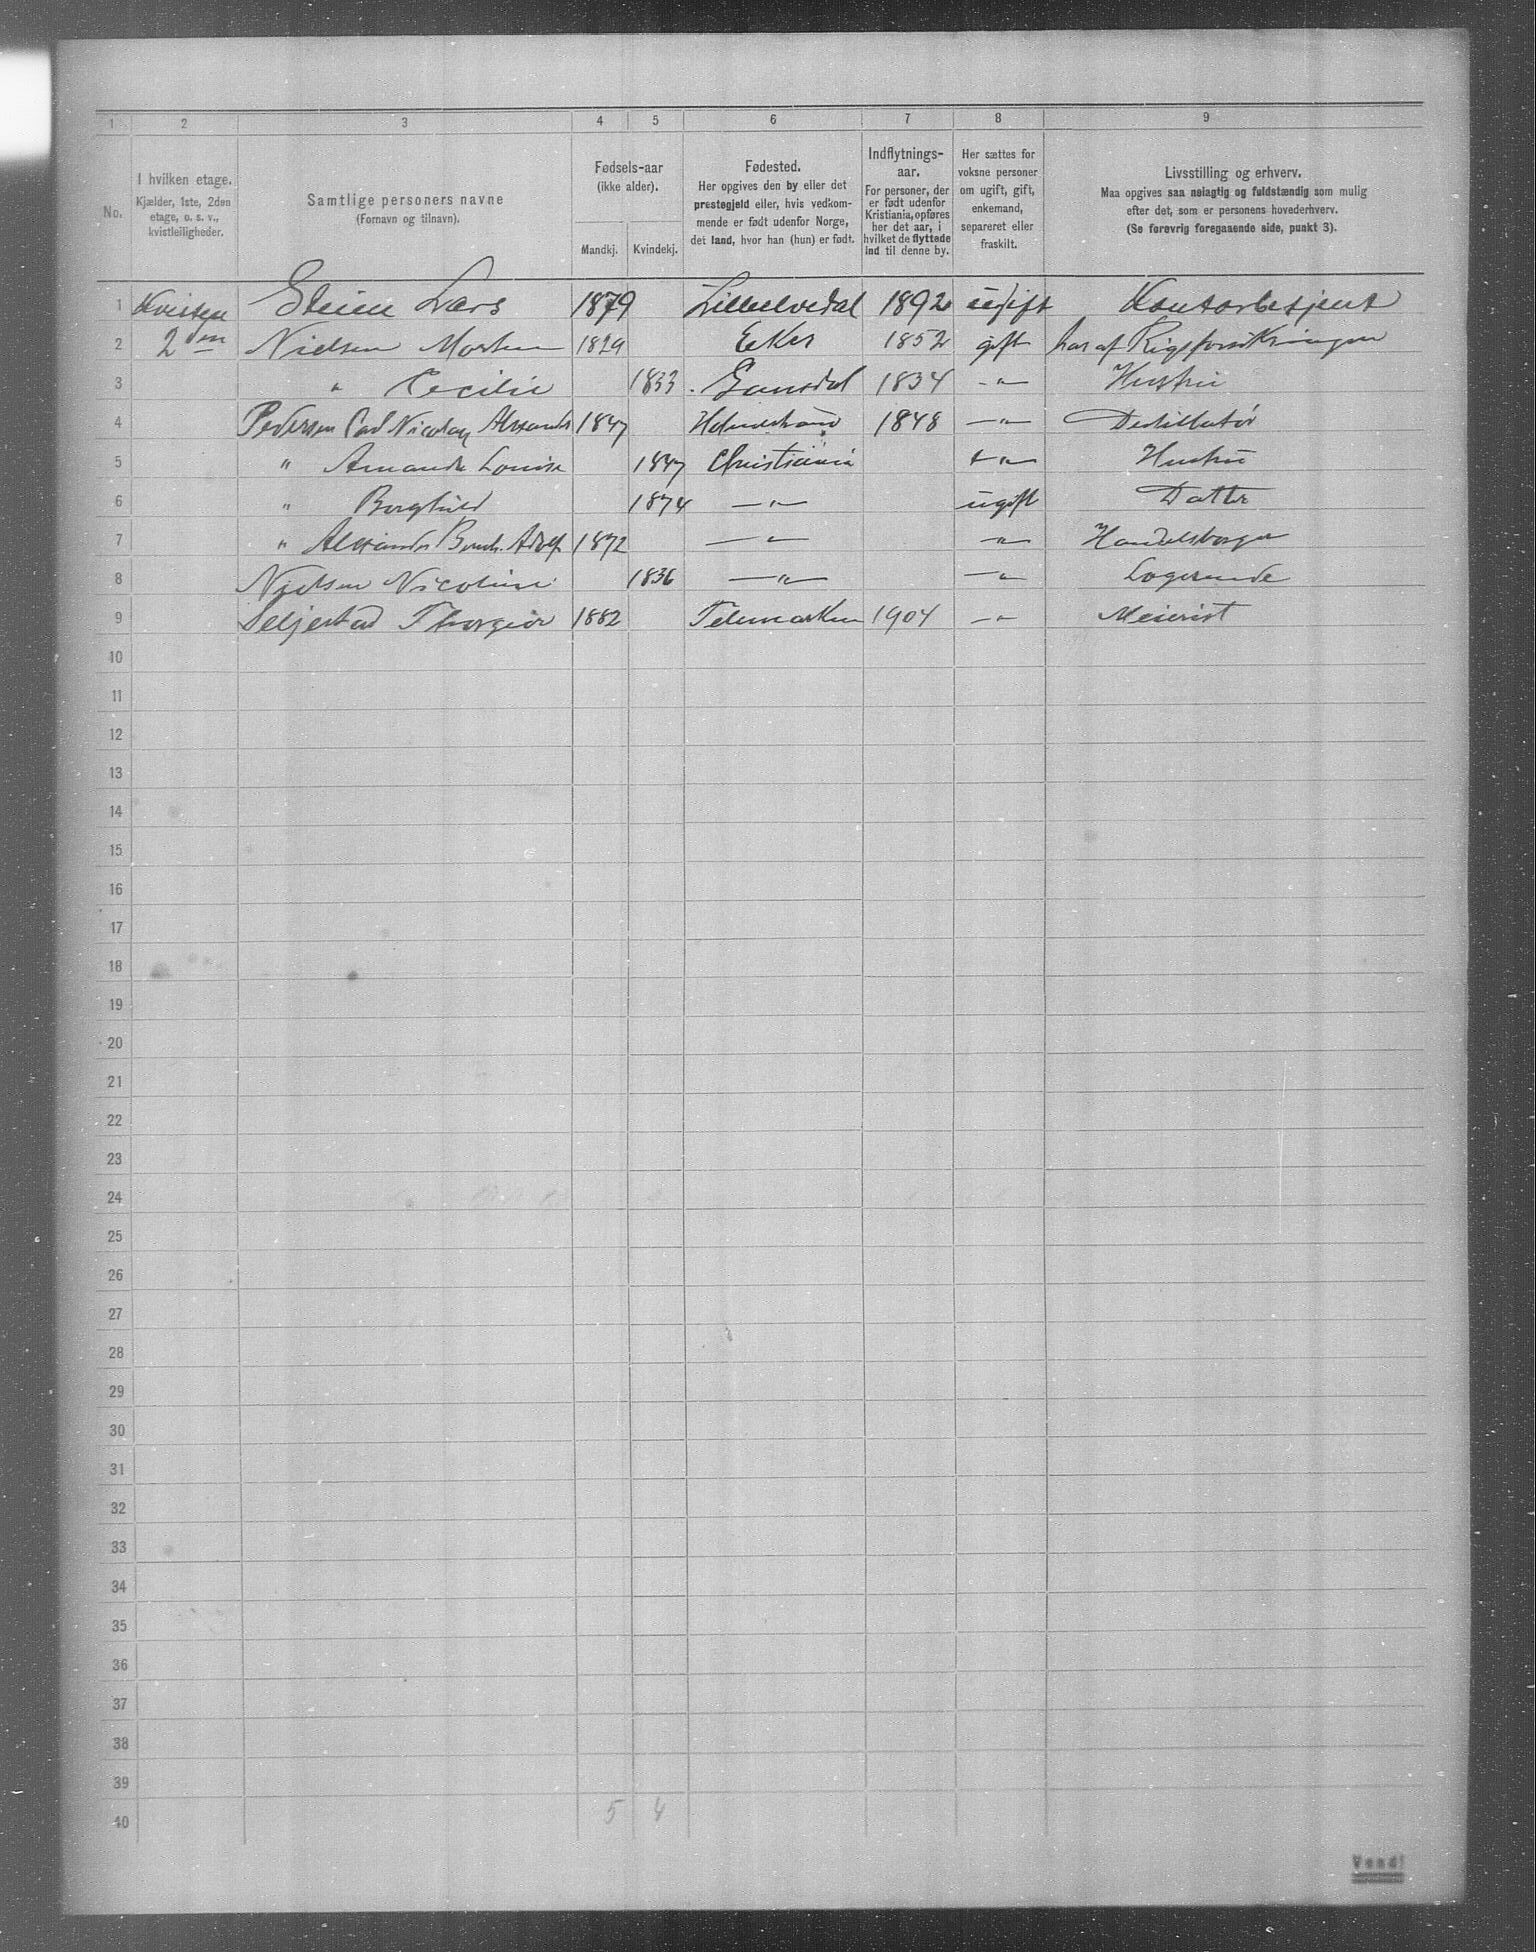 1 2 3 4 5 6 7 8 9
No.
I hvilken etage.
Kjælder, 1ste, 2den
etage, o. s. v.,
kvistleiligheder.
Samtlige personers navne
(Fornavn og tilnavn).
Fødsels-aar
(ikke alder).
Mandkj. Kvindekj.
Fødested.
Her opgives den by eller det
prestegjeld eller, hvis vedkom-
mende er født udenfor Norge,
det land, hvor han (hun) er født.
Indflytnings-
aar.
For personer, der
er født udenfor
Kristiania, opføres
her det aar, i
hvilket de flyttede
ind til denne by.
Her sættes for
voksne personer
om ugift, gift,
enkemand,
separeret eller
fraskilt.
Livsstilling og erhverv.
Maa opgives saa nøiagtig og fuldstændig som mulig
efter det, som er personens hovederhverv.
(Se forøvrig foregaaende side, punkt 3).
1 Lars 1879 Lilleelvedal 1892 ugift Kontorbetjent
2 2den Nielsen Morten 1829 Eker 1852 gift har af Rigsforsikringen
3 " Cecilie 1833 1834 -"- Hustru
4 Pedersen Carl Nicolay 1847 Holmestrand 1848 -"- Destillatør
5 " Amanda Louise 1847 Christiania -"- Hustru
6 " Borghild 1874 -"- ugift Datter
7 " Alexander 1872 -"- -"- Handelsborger
8 Nielsen Nicoline 1836 -"- -"- Logerende
9 Seljestad Thorgeir 1882 Telemarken 1904 -"- Meierist
10
11
12
13
14
15
16
17
18
19
20
21
22
23
24
25
26
27
28
29
30
31
32
33
34
35
36
37
38
39
40 5 4
Vend!